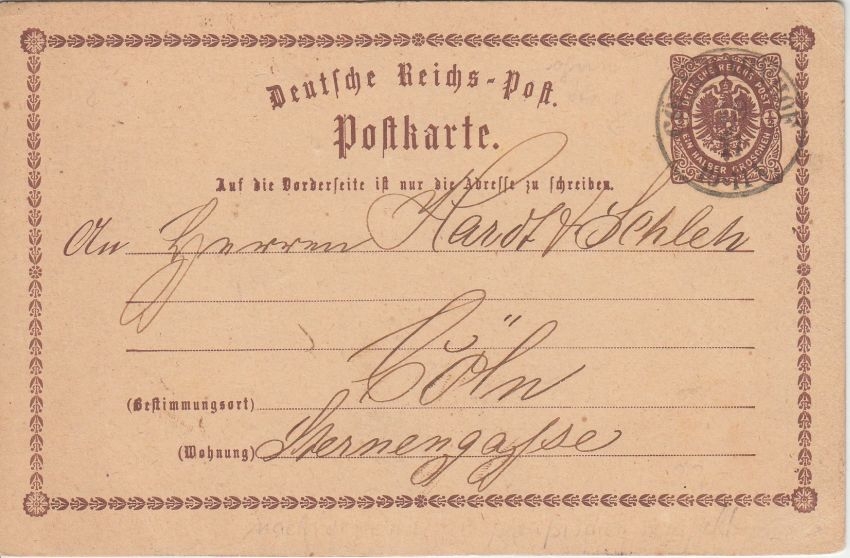 Deutsche Reichs-Post.
Postkarte.
DEUTSCHE REICHS POST
EIN HALBER GROSCHEN
Auf die Vorderseite ist nur die Adresse zu schreiben.
An Herren Hardt & Schleh
Cöln
(Bestimmungsort)
(Wohnung) Sternengasse